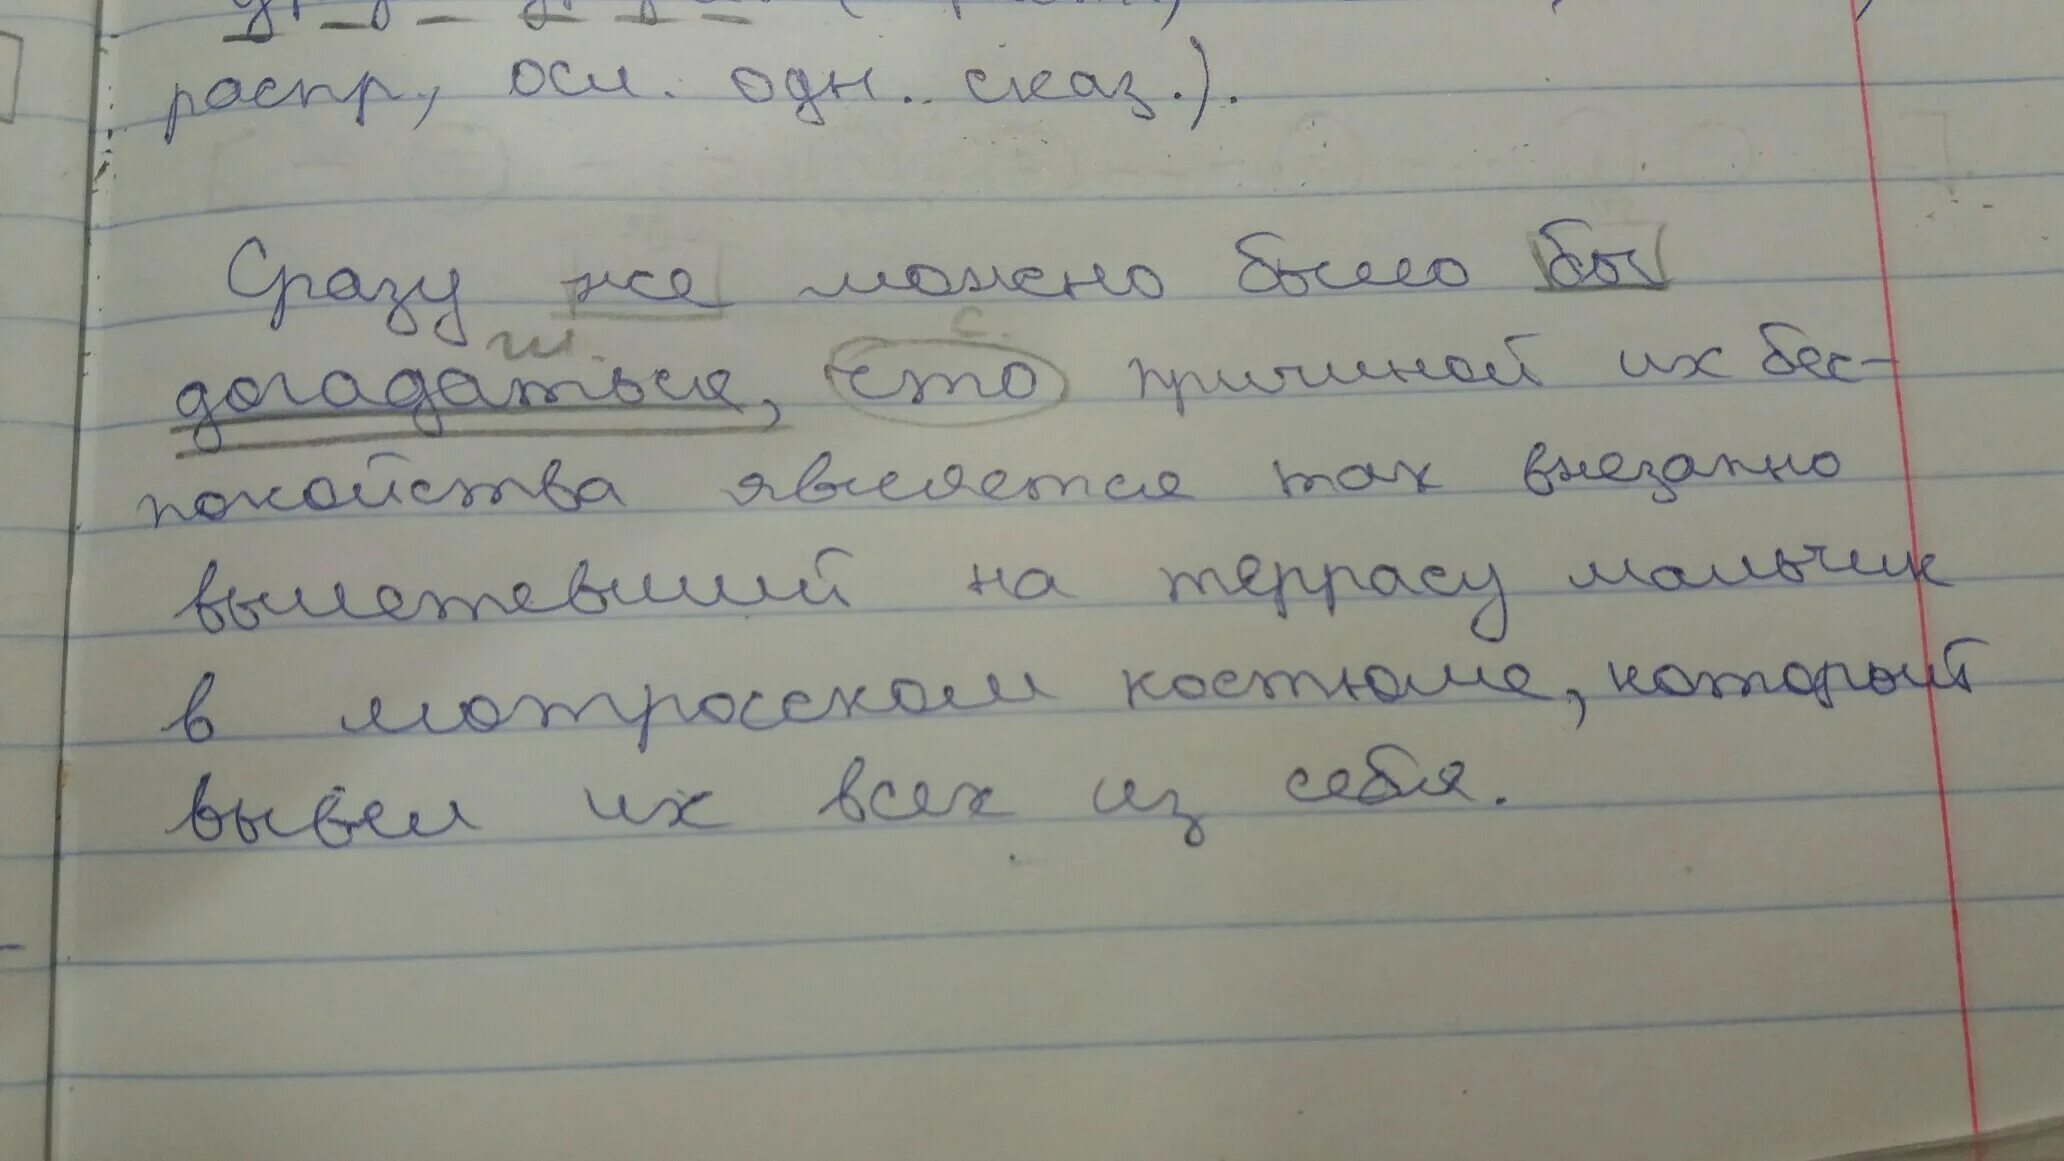 распр., осл. одн. сказ.).
Сразу же можно было бы
гл. с.
догадаться, что причиной их бес-
покойства является так внезапно
вылетевший на террасу мальчик
в матросском костюме, который
вывел их всех из себя.